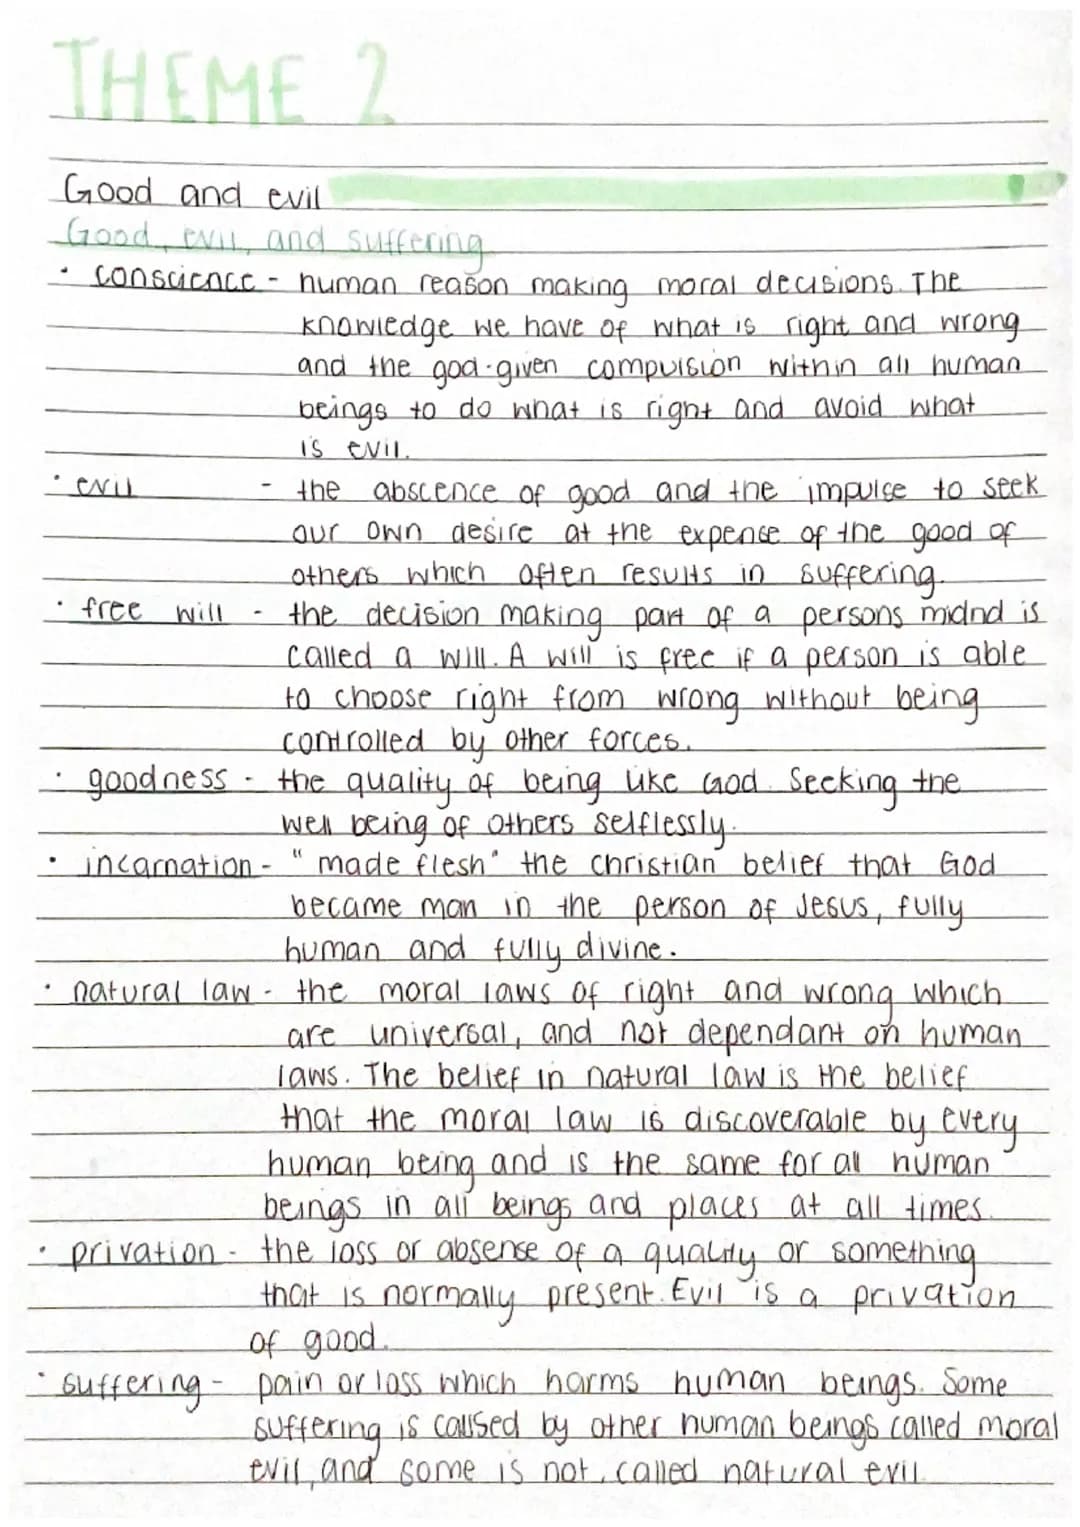 THEME 2
Good and evil
Good, evil, and suffering
• conscience - human reason making moral decisions. The
knowledge we have of what is right and wrong
and the god-given compulsion within all human
beings to do what is right and avoid what
is evil.
• evil - the abscence of good and the impulse to seek
our own desire at the expense of the good of
others which often results in suffering.
• free will - the decision making part of a persons midnd is
called a will. A will is free if a person is able
to choose right from wrong without being
controlled by other forces.
• goodness - the quality of being like God. Seeking the
well being of others selflessly.
• incarnation - "made flesh" the christian belief that God
became man in the person of Jesus, fully
human and fully divine.
• natural law - the moral laws of right and wrong which
are universal, and not dependant on human
laws. The belief in natural law is the belief
that the moral law is discoverable by every
human being and is the same for all human
beings in all beings and places at all times.
• privation - the loss or absense of a quality or something
that is normally present. Evil is a privation
of good.
• suffering - pain or loss which harms human beings. Some
suffering is caused by other human beings called moral
evil, and some is not, called natural evil.